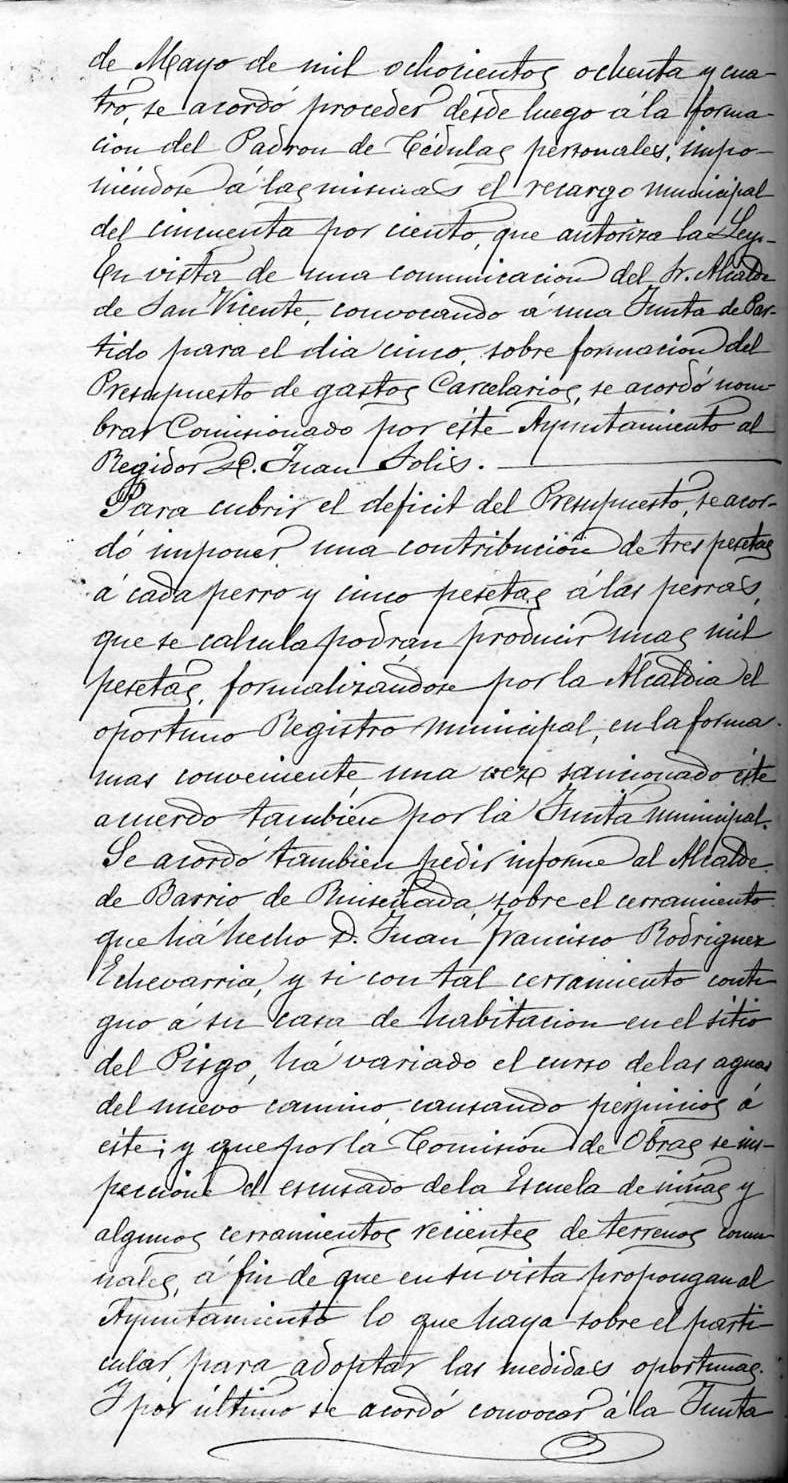 de Mayo de mil ochocientos ochenta y cua-
tro, se acordó proceder desde luego á la forma-
cion del Padron de Cédulas personales, impo-
niéndose á las mismas el recargo municipal
del cincuenta por ciento, que autoriza la Ley.-
En vista de una comunicacion del Sr. Alcalde
de San Vicente, convocando á una Junta de Par-
tido para el dia cinco, sobre formacion del
Presupuesto de gastos Carcelarios, se acordó nom-
brar Comisionado por éste Ayuntamiento al
Regidor D. Juan Solis.
Para cubrir el deficit del Presupuesto, se acor-
dó imponer una contribución de tres pesetas
á cada perro y cinco pesetas á las perras,
que se calcula podrán producir unas mil
pesetas, formalizándose por la Alcaldia el
oportuno Registro municipal, en la forma
mas conveniente, una vez sancionado éste
acuerdo tambien por la Junta municipal.
Se acordó tambien pedir informe al Alcalde
de Barrio de Ruiseñada, sobre el cerramiento
que há hecho D. Juan Francisco Rodriguez
Echevarria, y si con tal cerramiento conti
guo á su casa de habitacion en el sitio
del Pisgo, há variado el curso de las aguas
del nuevo camino, causando perjuicios á
éste; y que por la Comision de Obras se ins-
peccione el escusado de la Escuela de niñas y
algunos cerramientos recientes de terrenos comu
nales, á fin de que en su vista propongan al
Ayuntamiento lo que haya sobre el parti-
cular, para adoptar las medidas oportunas.
Y por último se acordó convocar á la Junta